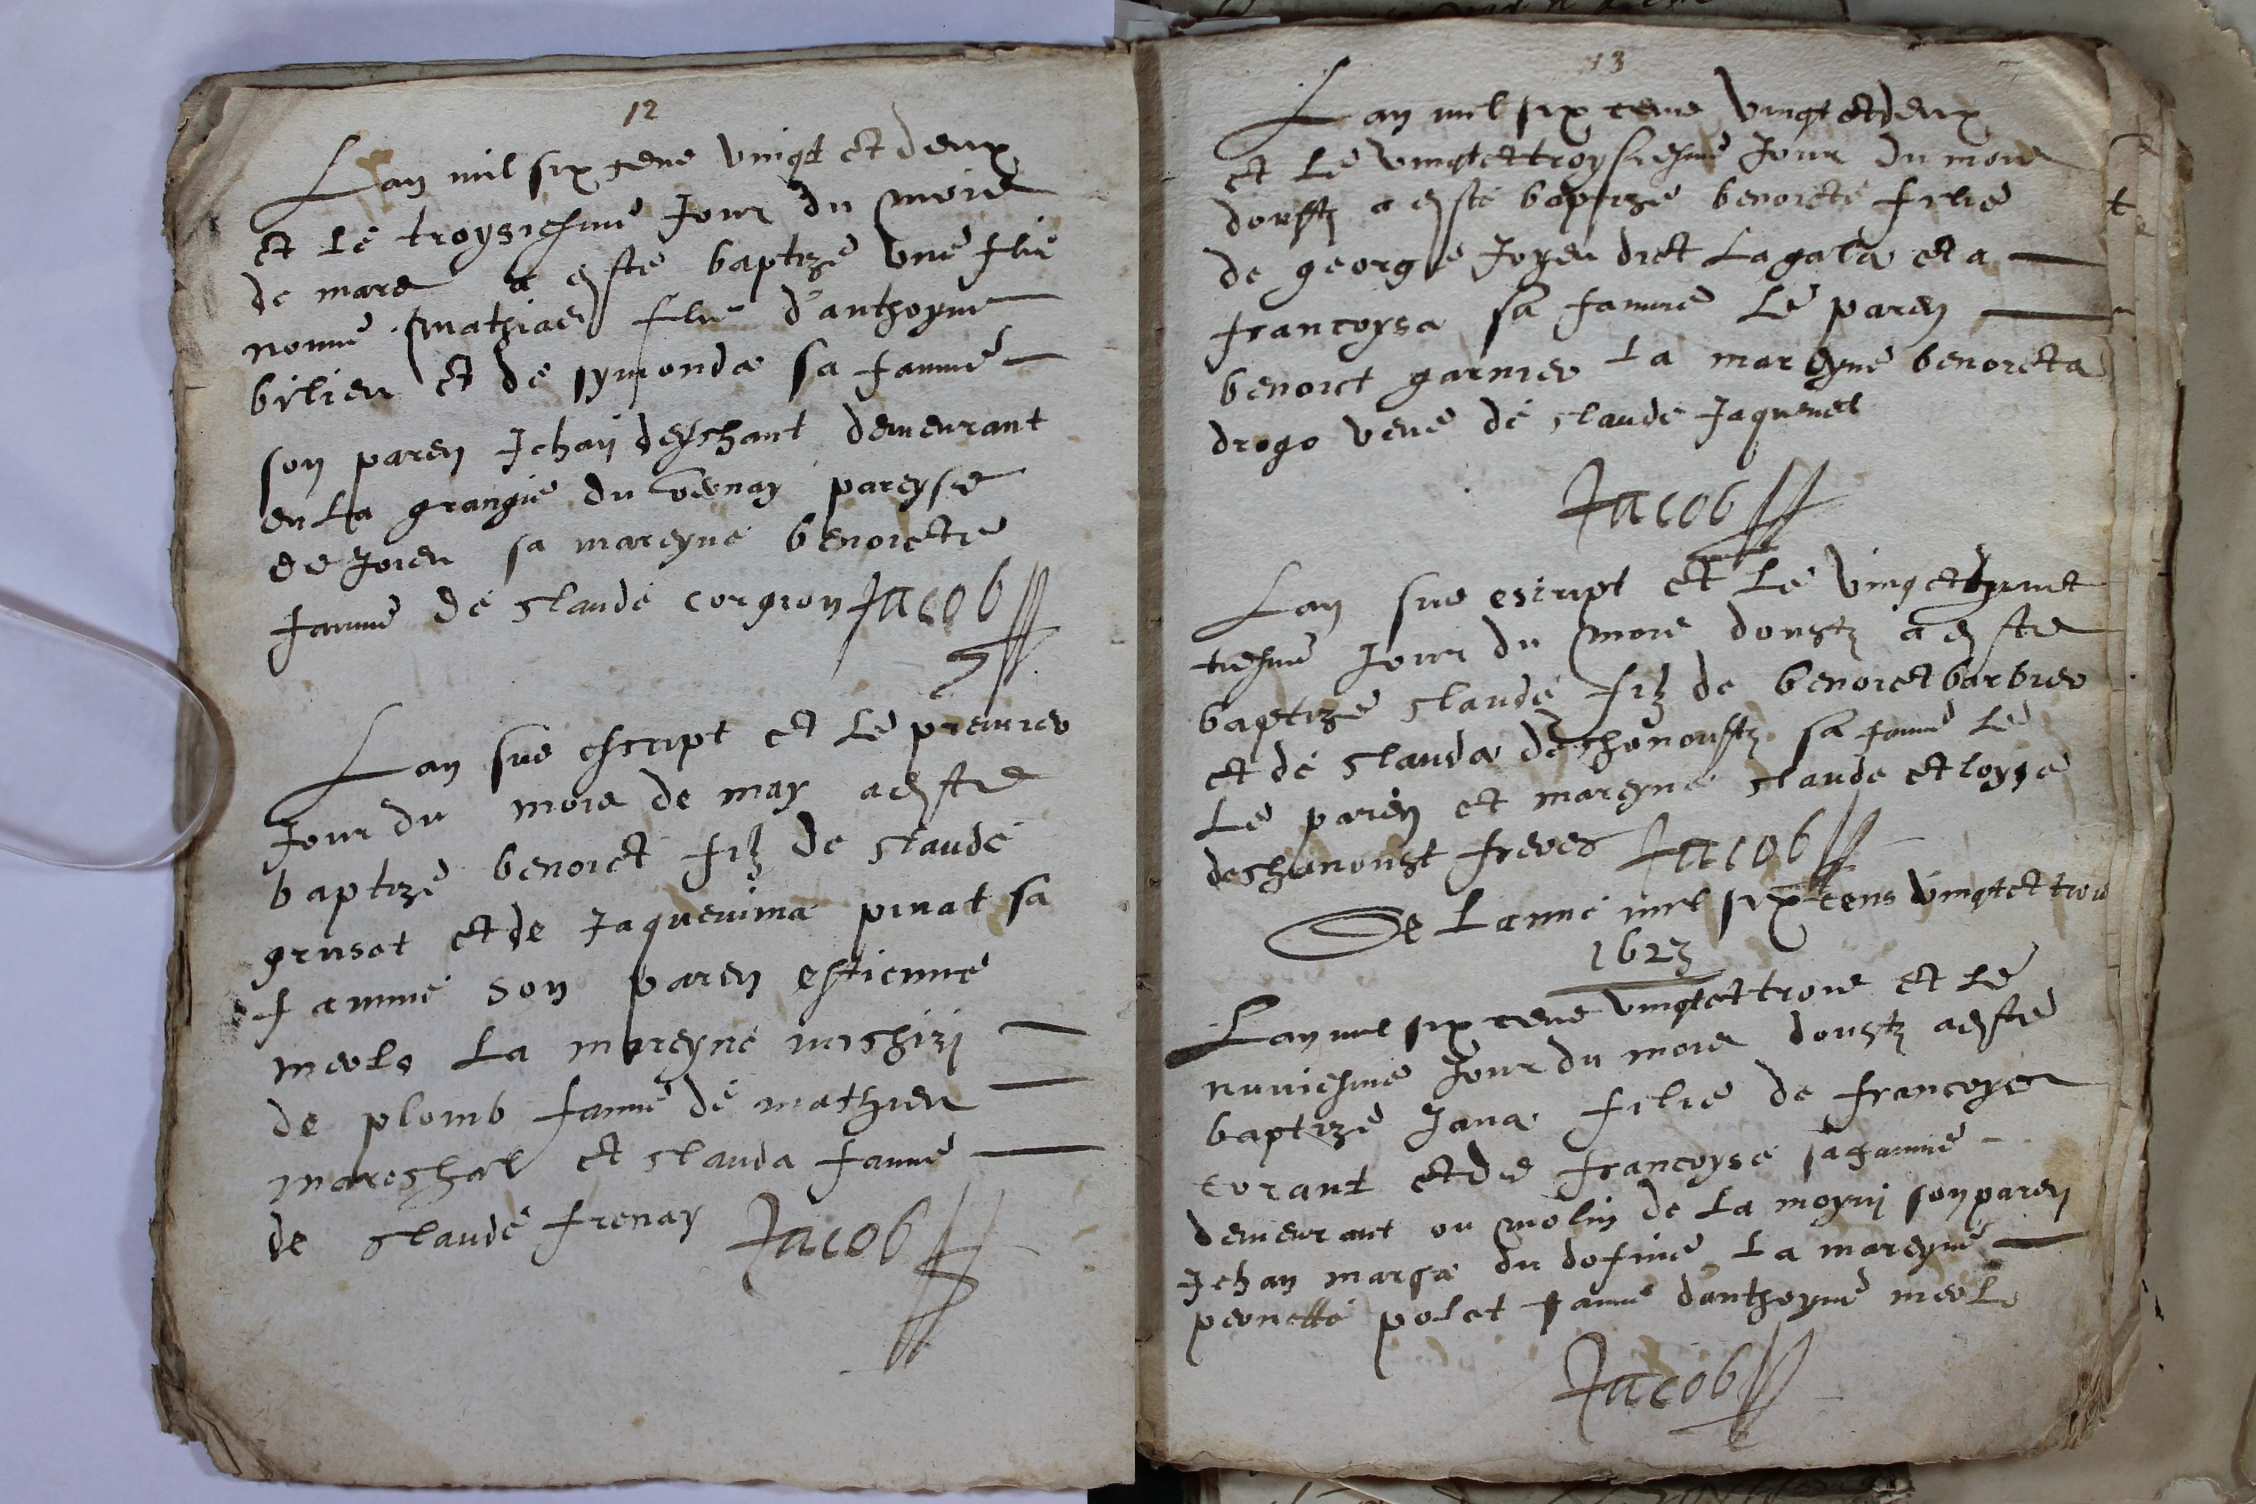 12
Lan mil six cens vingt et deux
et le troysiesme Jour du mois
de mars a este baptize une filie
nomme mathiae filie d'anthoyne
bilieu et de symonda sa famme
son paren Jehan deschant demeurant
en La grangie du vernay pareyse
de Joieu sa mareyne benoicte
famme de claude corgion Jacob
Lan sus escript et Le premier
Jour du mois de may a este
baptize benoict filz de claude
grusot et de Jaquemina pinat sa
famme son paren estienne
merlo La mareyne michizi
de plomb famme de mathieu
mareschal et clauda famme
de claude frenay Jacob
13
Lan mil six cens vingt et deux
et Le vingt et troysiesme Jour du mois
doustz a este baptize benoicte filie
de george Joyeu dict Lagala et a
francoysa sa famme Le paren
benoict garnier La mareyne benoicta
drogo veue de claude Jaquemet
Jacob
Lan sus escript et Le vingt et
tiesme Jour du mois doustz a este
baptize claude filz de benoict barbier
et de clauda deschenoustz sa famme Le
Le paren et mareyne claude et loyse
deschenoust freres Jacob
De Lanne mil six cens vingt et trois
1623
Lan mil six cens vingt et trois et Le
nuviesme Jour du mois doustz a este
baptize Jana filie de francoys
corant et de francoyse sa famme
demeurant ou molin de La moyni son paren
Jehan marsa du dofine La mareyne
pernette polet famme d'anthoyne merle
Jacob